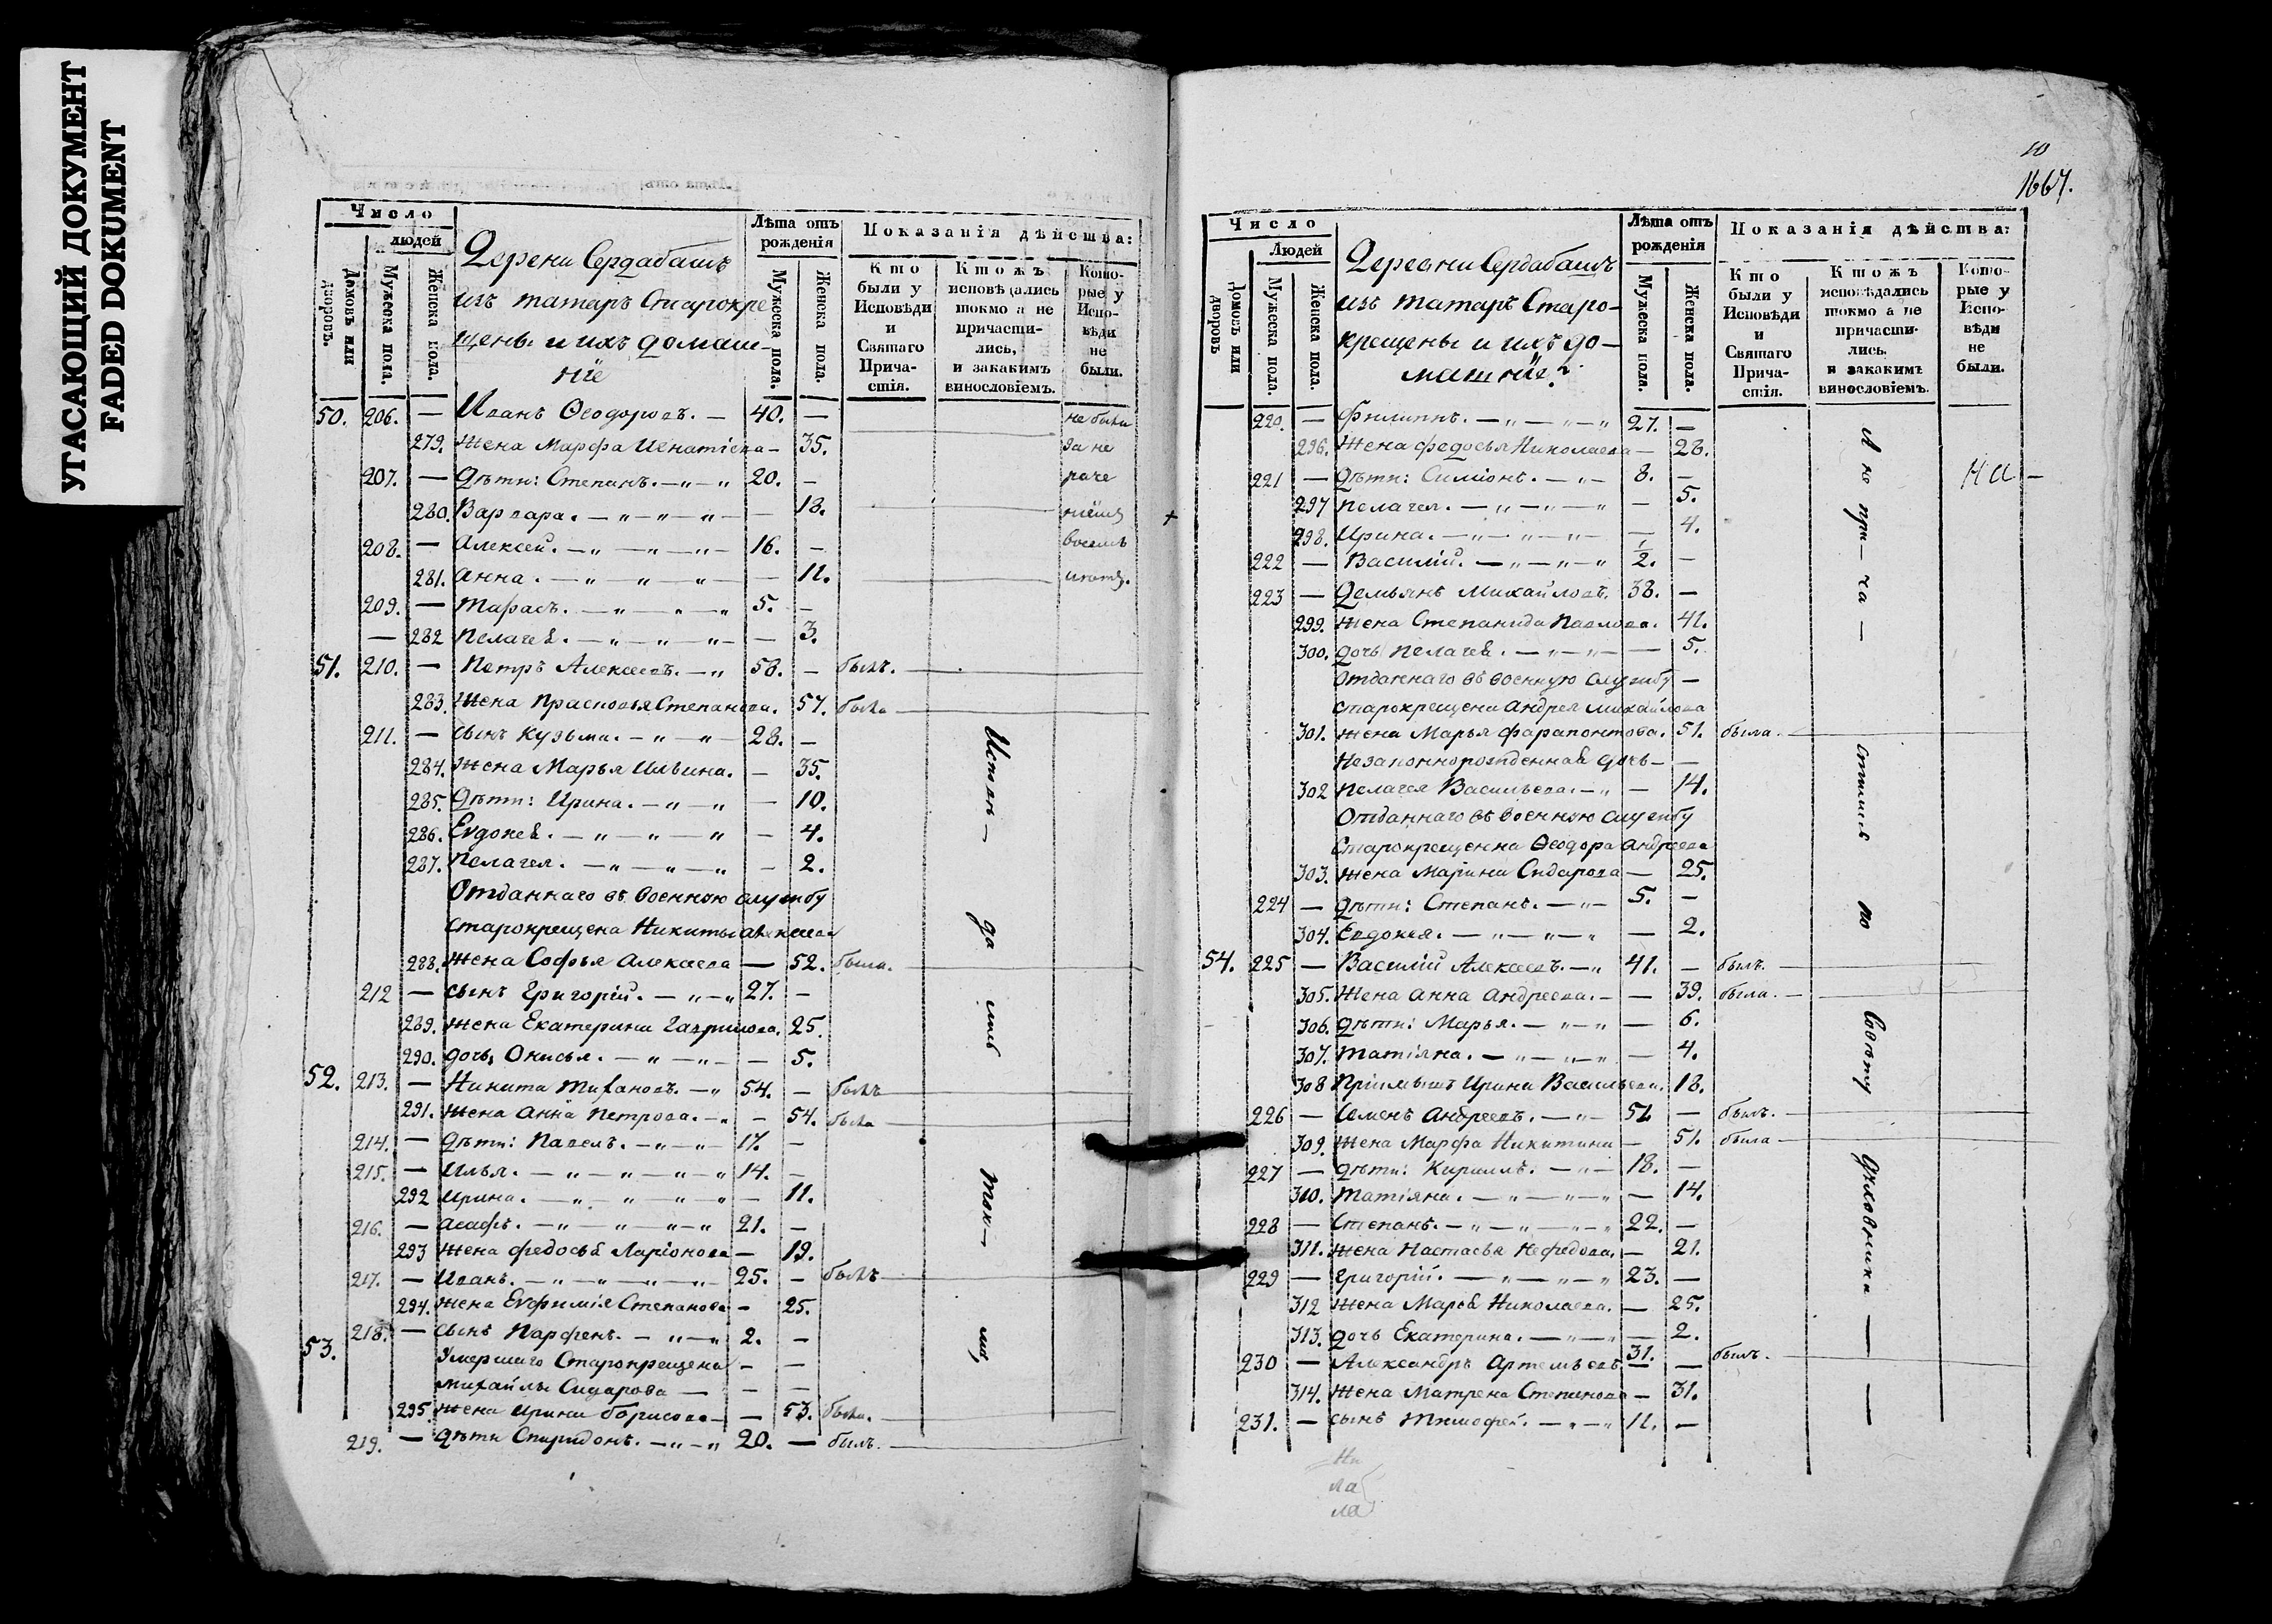 УТАСАЮЩИЙ ДОКУМЕНТ
FADED DOKUMENT
Число
людей
Домовъ или дворовъ.
Мужеска пола.
Женска пола.
Дерени Сердабашъ
изъ татаръ Старокре
щены и ихъ домаш-
ніе
Лѣта отъ рожденія
Мужеска пола.
Женска пола.
Показанія дѣйства:
Кто были у Исповѣди и Святаго Прича-стія.
Ктожъ исповѣдались токмо а не причасти-лись, и закакимъ винословіемъ.
Кото-рые у Испо-вѣди не были.
50. 206. — Иванъ Ѳеодоровъ. — 40. — не были
279. Жена Марфа Игнатіева — 35. за не
207. — Дѣти: Степанъ. — „ — „ 20. — раче
280. Варвара. — „ — „ — „ — — 18. ніемъ
208. — Алексей. — „ — „ — „ — 16. —
281. Анна. — „ — „ — „ — — 11.
209. — Тарасъ. — „ — „ — „ 5. —
— 282 Пелагея. — „ — „ — „ — — 3.
51. 210. — Петръ Алексеевъ. — „ 58. — былъ.
283. Жена Прасковья Степанова. 57. была
211. — сынъ Кузьма. — „ — „ — 28. —
284. Жена Марья Ильина. — 35.
285. Дѣти: Ирина. — „ — „ — 10.
286. Евдокея. — „ — „ — „ — 4.
287. Пелагея. — „ — „ — „ — 2.
Отданнаго въ военную службу
Старокрещена Никиты Алексеева
288. жена Софья Алексеева — 52. была.
212 — сынъ Григорій. — „ — „ 27. —
289. жена Екатерина Гаврилова. 25.
290. дочь Онисья. — „ — „ — — 5.
52. 213. — Никита — „ 54. — былъ
291. жена Анна Петрова. — „ — 54. была
214. — Дѣти: Павелъ. — „ — „ — 17. —
215. — Илья. — „ — „ — „ — „ 14. —
292 Ирина. — „ — „ — „ — „ — 11.
216. — — „ — „ — „ — „ 21. —
293 жена Федосья Ларіонова — — 19.
217. — Иванъ. — „ — „ — „ — „ — 25. — былъ
294. жена Евфимія Степанова — 25.
53. 218. — сынъ Парфенъ. — „ — „ 2. —
Умершаго Старокрещена — —
Михайлы Сидарова — — —
295. жена Ирина Борисова — — 53. была.
219. — Дѣти Спиридонъ. — „ — „ 20. — былъ.
Исповѣ —
да
лись
ток —
мо,
10
1667.
Число
Людей
Домовъ или дворовъ
Мужеска пола.
Женска пола.
Деревни Сердабашъ
изъ татаръ Старо-
крещены и ихъ до-
машніе.
Лѣта отъ рожденія
Мужеска пола.
Женска пола.
Показанія дѣйства:
Кто были у Исповѣди и Святаго Прича-стія.
Ктожъ исповѣдались токмо а не причасти-лись. и закакимъ винословіемъ.
Кото-рые у Испо-вѣди не были.
220. — Филиппъ. — „ — „ — „ 27. —
296. Жена Федосья Николаева — 28.
221 — Дѣти: Симіонъ. — „ — 8. — на —
297 Пелагея. — „ — „ — „ — 5.
298. Ирина. — „ — „ — „ — — 4.
222 — Василій. — „ — „ — „ 1/2. —
223 — Демьянъ Михайловъ. 38. —
299. жена Степанида Павлова. 41.
300. дочь Пелагея. — „ — „ — — 5.
Отданнаго въ военную службу —
старокрещена Андрея Михайлова
301. жена Марья Фарапонтова. 51. была.
Незаконнорожденная дочь — —
302 Пелагея Васильева. — „ — 14.
Отданнаго въ военною службу
Старокрещенна Ѳеодора Андреева
303. жена Марина Сидарова — 25.
224 — Дѣти: Степанъ. — „ — 5. —
304. Евдокея. — „ — „ — „ — 2.
54. 225 — Василій Алексеевъ. — „ 41. — былъ.
305. Жена Анна Андреева. — — 39. была.
306. Дѣти: Марья. — „ — „ — 6.
307. Татіяна. — „ — „ — „ — 4.
308 Пріимышъ Ирина Васильева. 18.
226 — Семенъ Андреевъ. — „ — 51 — былъ.
309. жена Марфа Никитина — 51. была
227 — Дѣти: Кириллъ. — „ — 18. —
310. Татіяна. — „ — „ — „ — 14.
228 — Степанъ. — „ — „ — „ — „ 22. —
311. Жена Настасья Нефедова. — 21.
229 — Григорій. — „ — „ — „ 23. —
312 Жена Марѳа Николаева. — 25.
313. дочь Екатерина. — „ — „ — 2.
230 — Александръ Артемьевъ 31. — былъ.
314. жена Матрена Степанова — 31.
231. — сынъ Тимофей. — „ — „ 11. —
А не
при —
ча —
стились
по
Совѣту
духовника —
ни
ла
ля